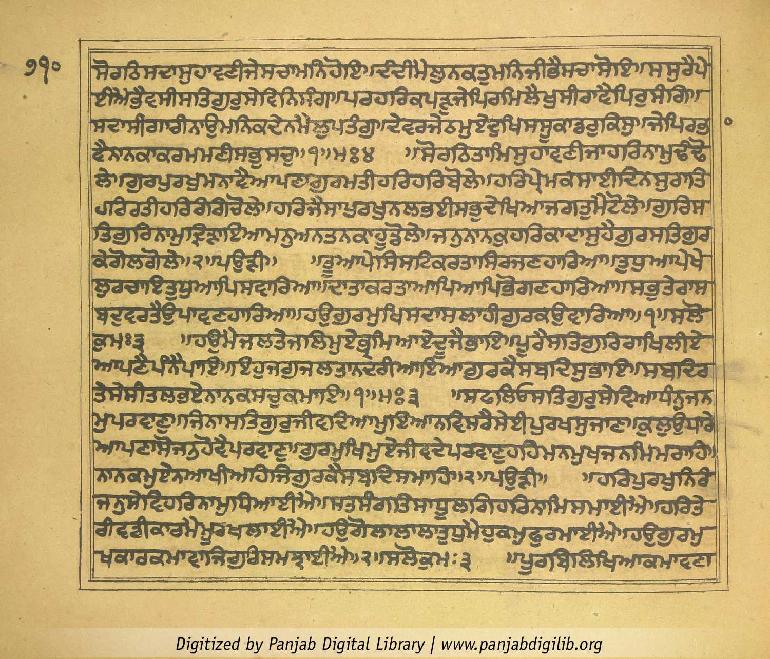 ੭੧੦
ਸੋਰਠਿਸਦਾਸੁਹਾਵਣੀਜੇਸਚਾਮਨਿਹੋਇ॥ਦੰਦੀਮੈਲੁਨਕਤੁਮਨਿਜੀਭੈਸਚਾਸੋਇ॥ਸਸੁਰੈਪੇ
ਈਐਭੈਵਸੀਸਤਿਗੁਰੁਸੇਵਿਨਿਸੰਗ॥ਪਰਹਰਿਕਪੜੁਜੇਪਿਰਮਿਲੈਖੁਸੀਰਾਵੈਪਿਰੁਸੰਗਿ॥
ਸਦਾਸੀਗਾਰੀਨਾਉਮਨਿਕਦੇਨਮੈਲੁਪਤੰਗੁ॥ਦੇਵਰਜੇਠਮੁਏਦੁਖਿਸਸੂਕਾਡਰੁਕਿਸੁ॥ਜੇਪਿਰਭ
ਵੈਨਾਨਕਾਕਰਮਮਣੀਸਭੁਸਚੁ॥੧॥ਮਃ੪ ॥ਸੋਰਠਿਤਾਮਿਸੁਹਾਵਣੀਜਾਹਰਿਨਾਮੁਢੰਢੋ
ਲੇ॥ਗੁਰਪੁਰਖੁਮਨਾਵੈਆਪਣਾਗੁਰਮਤੀਹਰਿਹਰਿਬੋਲੇ॥ਹਰਿਪ੍ਰੇਮਕਸਾਈਦਿਨਸੁਰਾਤਿ
ਹਰਿਰਤੀਹਰਿਰੰਗਿਚੋਲੇ॥ਹਰਿਜੈਸਾਪੁਰਖੁਨਲਭਈਸਭੁਦੇਖਿਆਜਗਤੁਮੈਟੋਲੇ॥ਗੁਰਿਸ
ਤਿਗੁਰਿਨਾਮੁਦ੍ਰਿੜਾਇਆਮਨੁਅਨਤਨਕਾਹੂਡੋਲੇ॥ਜਨੁਨਾਨਕੁਹਰਿਕਾਦਾਸੁਹੈਗੁਰਸਤਿਗੁਰ
ਕੇਗੋਲਗੋਲੇ॥੨॥ਪਉੜੀ॥ ॥ਤੂਆਪੇਸਿਸਟਿਕਰਤਾਸਿਰਜਣਹਾਰਿਆ॥ਤੁਧੁਆਪੇਖੇ
ਲੁਰਚਾਇਤੁਧੁਆਪਿਸਵਾਰਿਆ॥ਦਾਤਾਕਰਤਾਆਪਿਆਪਿਭੋਗਣਹਾਰਿਆ॥ਸਭੁਤੇਰਾਸ
ਬਦੁਵਰਤੈਉਪਾਵਣਹਾਰਿਆ॥ਹਉਗੁਰਮੁਖਿਸਦਾਸਲਾਹੀਗੁਰਕਉਵਾਰਿਆ॥੧॥ਸਲੋ
ਕੁਮਃ੩ ॥ਹਉਮੈਜਲਤੇਜਲਿਮੁਏਭ੍ਰਮਿਆਏਦੂਜੈਭਾਇ॥ਪੂਰੈਸਤਿਗੁਰਿਰਾਖਿਲੀਏ
ਆਪਣੈਪੰਨੈਪਾਇ॥ਇਹੁਜਗੁਜਲਤਾਨਦਰੀਆਇਆਗੁਰਕੈਸਬਦਿਸੁਭਾਇ॥ਸਬਦਿਰ
ਤੇਸੇਸੀਤਲਭਏਨਾਨਕਸਚੁਕਮਾਇ॥੧॥ਮਃ੩ ॥ਸਫਲਿਓਸਤਿਗੁਰੁਸੇਵਿਆਧੰਨੁਜਨ
ਮੁਪਰਵਾਣੁ॥ਜਿਨਾਸਤਿਗੁਰੁਜੀਵਦਿਆਮੁਇਆਨਵਿਸਰੈਸੇਈਪੁਰਖਸੁਜਾਣ॥ਕੁਲੁਉਧਾਰੇ
ਆਪਣਾਸੋਜਨੁਹੋਵੈਪਰਵਾਣੁ॥ਗੁਰਮੁਖਿਮੁਏਜੀਵਦੇਪਰਵਾਣੁਹਹਿਮਨਮੁਖਜਨਮਿਮਰਾਹਿ॥
ਨਾਨਕਮੁਏਨਆਖੀਅਹਿਜਿਗੁਰਕੈਸਬਦਿਸਮਾਹਿ॥੨॥ਪਉੜੀ॥ ॥ਹਰਿਪੁਰਖੁਨਿਰੰ
ਜਨੁਸੇਵਿਹਰਿਨਾਮੁਧਿਆਈਐ॥ਸਤਸੰਗਤਿਸਾਧੂਲਗਿਹਰਿਨਾਮਿਸਮਾਈਐ॥ਹਰਿਤੇ
ਰੀਵਡੀਕਾਰਮੈਮੂਰਖਲਾਈਐ॥ਹਉਗੋਲਾਲਾਲਾਤੁਧੁਮੈਹੁਕਮੁਫੁਰਮਾਈਐ॥ਹਉਗੁਰਮੁ
ਖਕਾਰਕਮਾਵਾਜਿਗੁਰਿਸਮਝਾਈਐ॥੨॥ਸਲੋਕੁਮਃ੩ ॥ਪੂਰਬਿਲਿਖਿਆਕਮਾਵਣਾ
Digitized by Panjab Digital Library | www.panjabdigilib.org